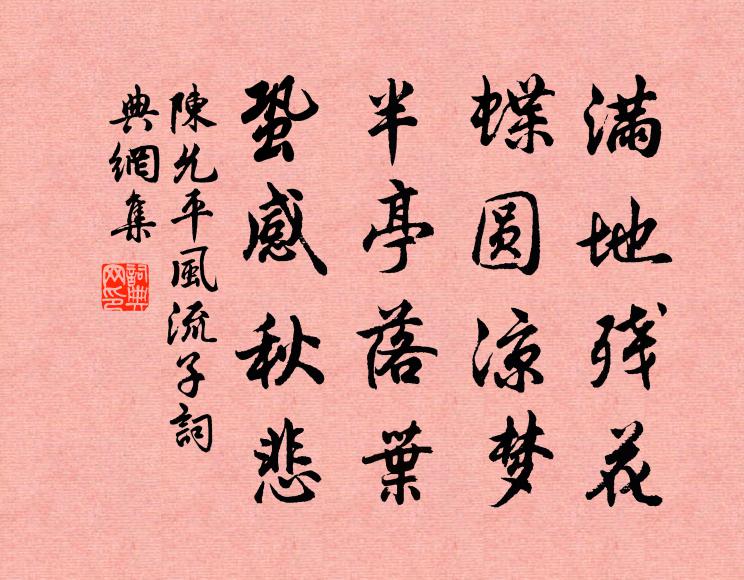 满地残花
蝶圆凉梦
半亭落葉
蛩感秋悲
陳允平風流子詞
典網集
詞典網印